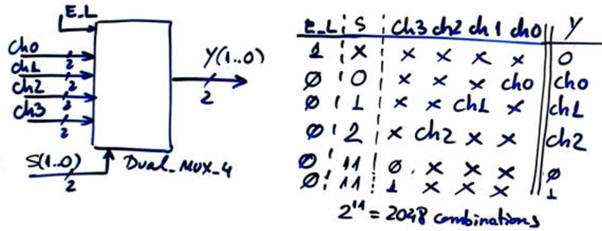 E_L
ch0 2
ch1 2
ch2 2
ch3 2
Y(1..0)
2
S(1..0)
2
Dual_MUX_4
E_L S ch3 ch2 ch1 ch0 Y
1 x x x x x 0
0 0 x x x ch0 ch0
0 1 x x ch1 x ch1
0 2 x ch2 x x ch2
0 11 0 x x x 0
0 11 1 x x x 1
2^11 = 2048 combinations